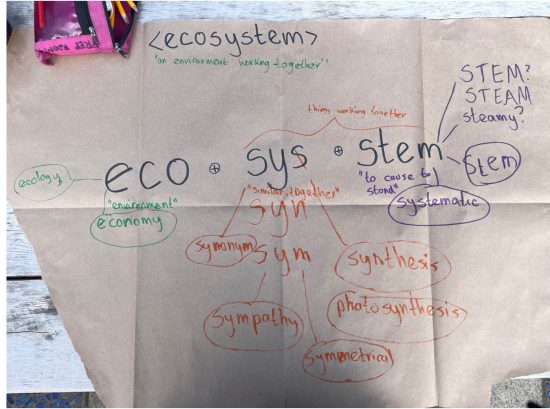 <ecosystem>
"an environment working together"
STEM?
STEAM
steamy?
things working together
eco ⊕ sys ⊕ stem
stem
ecology
"environment"
"similar, together"
"to cause to stand"
economy
systematic
syn
synonym
sym
synthesis
photosynthesis
sympathy
symmetrical